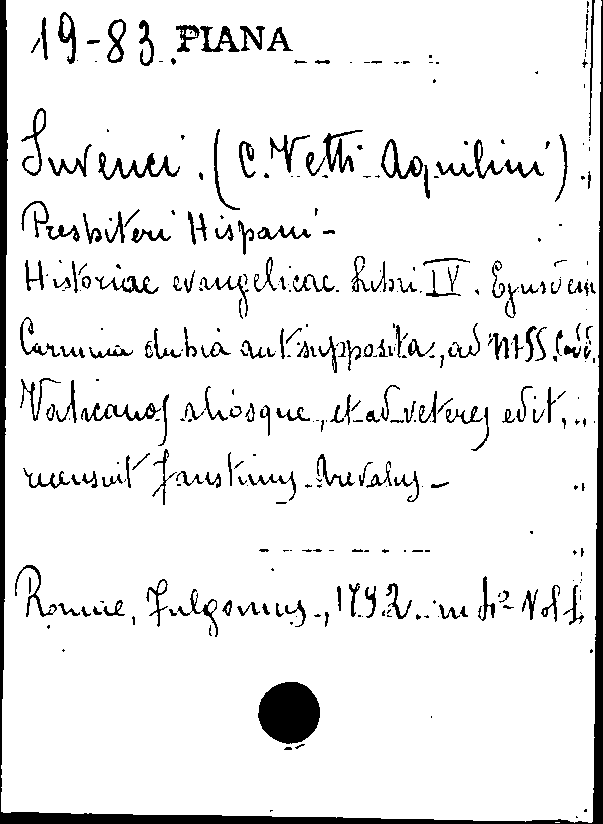 19-83. PIANA
Iuvenci. (C. Vetti Aquilini)
Presbiteri Hispani -
Historiae evangelicae Libri IV. Ejusdem
Carmina dubia aut supposita, ad MSS. Codd.
Vaticanos aliosque, et ad veteres edit.
recensuit Faustinus Arevalus -
Romae, Fulgonius, 1792. in 4º Vol 1.